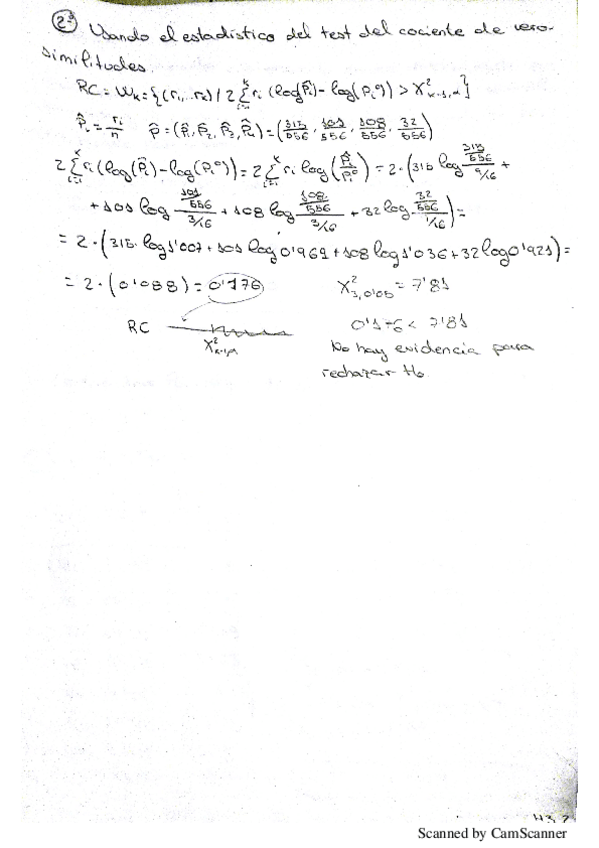 2ª Usando el estadístico del test del cociente de vero-
similitudes.
RC = W_k = {(r₁,...r_k) / 2 ∑_{i=1}^{k} r_i (log(p̂_i) - log(p_i⁰) > χ²_{k-1,α}}
p̂_i = r_i/n   p̂ = (p̂₁, p̂₂, p̂₃, p̂₄) = (315/556, 101/556, 108/556, 32/556)
2 ∑_{i=1}^{k} r_i (log(p̂_i) - log(p_i⁰)) = 2 ∑_{i=1}^{k} r_i log(p̂_i/p_i⁰) = 2·(315 log (315/556)/(9/16) +
+ 101 log (101/556)/(3/16) + 108 log (108/556)/(3/16) + 32 log (32/556)/(1/16)) =
= 2·(315·log 1'007 + 101 log 0'969 + 108 log 1'036 + 32 log 0'921) =
= 2·(0'088) = 0'176   χ²_{3,0'05} = 7'81
RC   0'176 < 7'81
χ²_{k-1,α}   No hay evidencia para
rechazar H₀.
Scanned by CamScanner